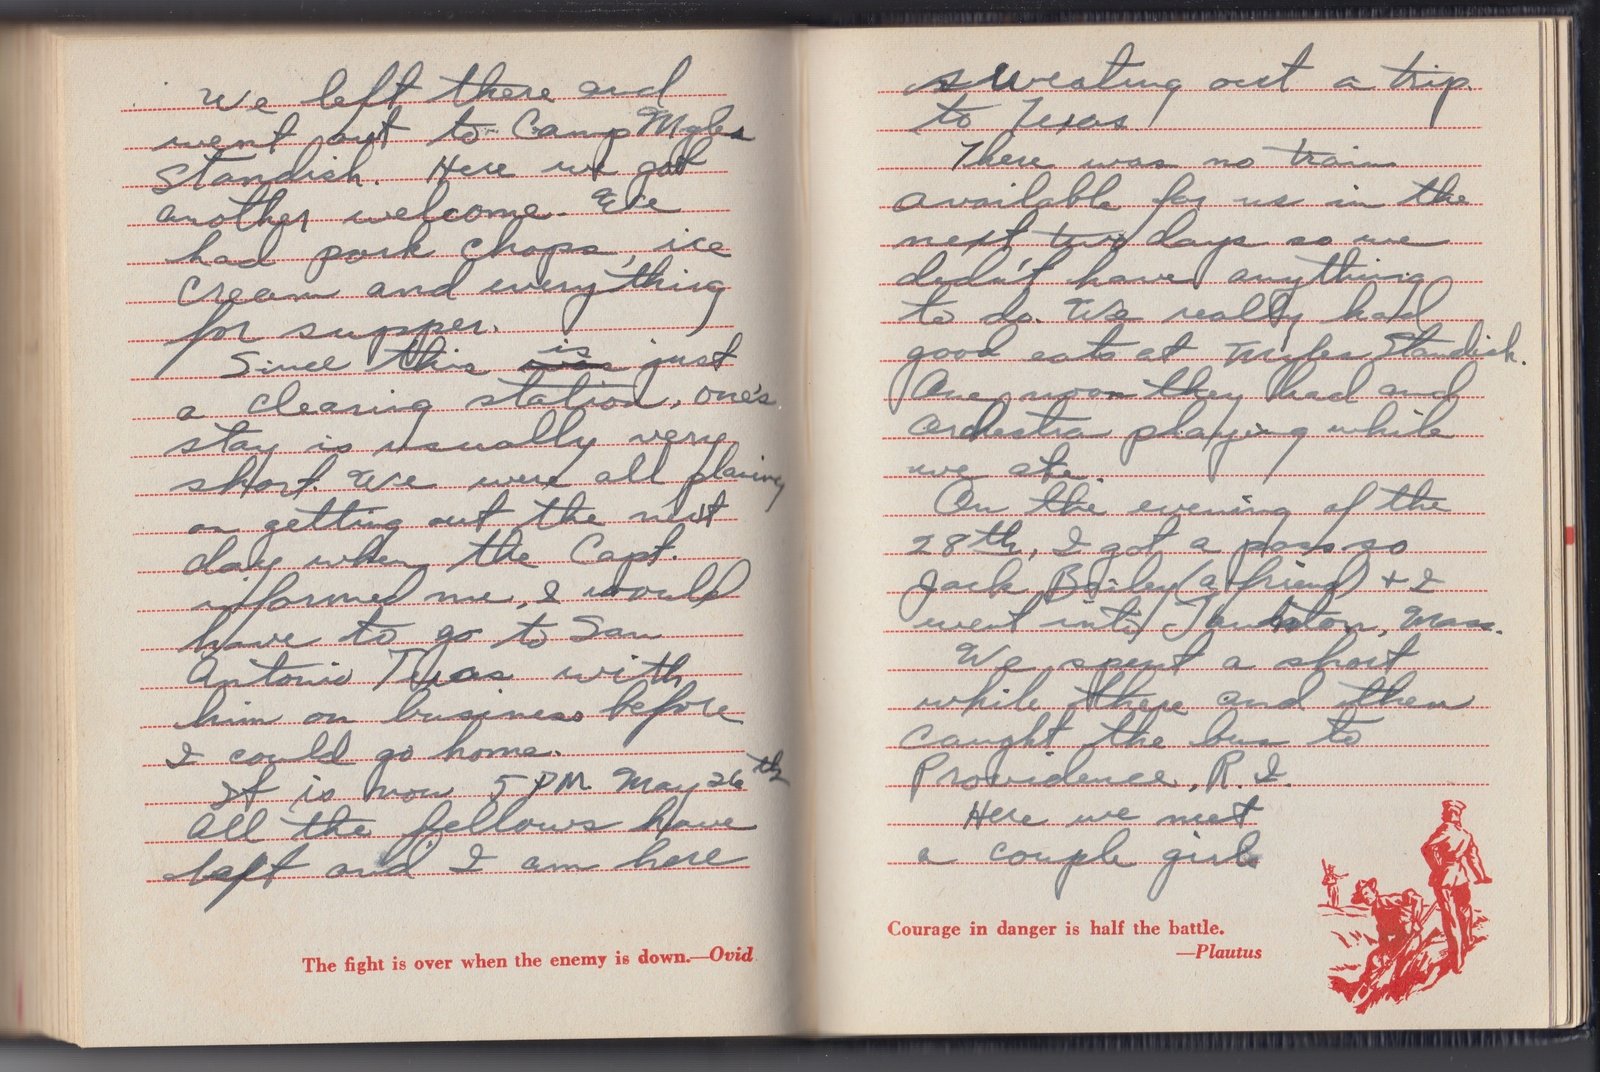 We left there and
went out to Camp Myles
Standish. Here we got
another welcome. We
had pork chops, ice
cream and everything
for supper.
Since this was is just
a clearing station, one's
stay is usually very
short. We were all planing
on getting out the next
day when the Capt.
informed me, I would
have to go to San
Antonio Texas with
him on business before
I could go home.
It is now 5 PM May 26th
All the fellows have
left and I am here
The fight is over when the enemy is down.—Ovid
sweating out a trip
to Texas.
There was no train
available for us in the
next two days so we
didn't have anything
to do. We really had
good eats at Myles Standish.
One noon they had and
orchestra playing while
we ate.
On the evening of the
28th, I got a pass so
Jack Bailey (a friend) + I
went into Taunton, Mass.
We spent a short
while there and then
caught the bus to
Providence, R.I.
Here we meet
a couple girls
Courage in danger is half the battle.
—Plautus